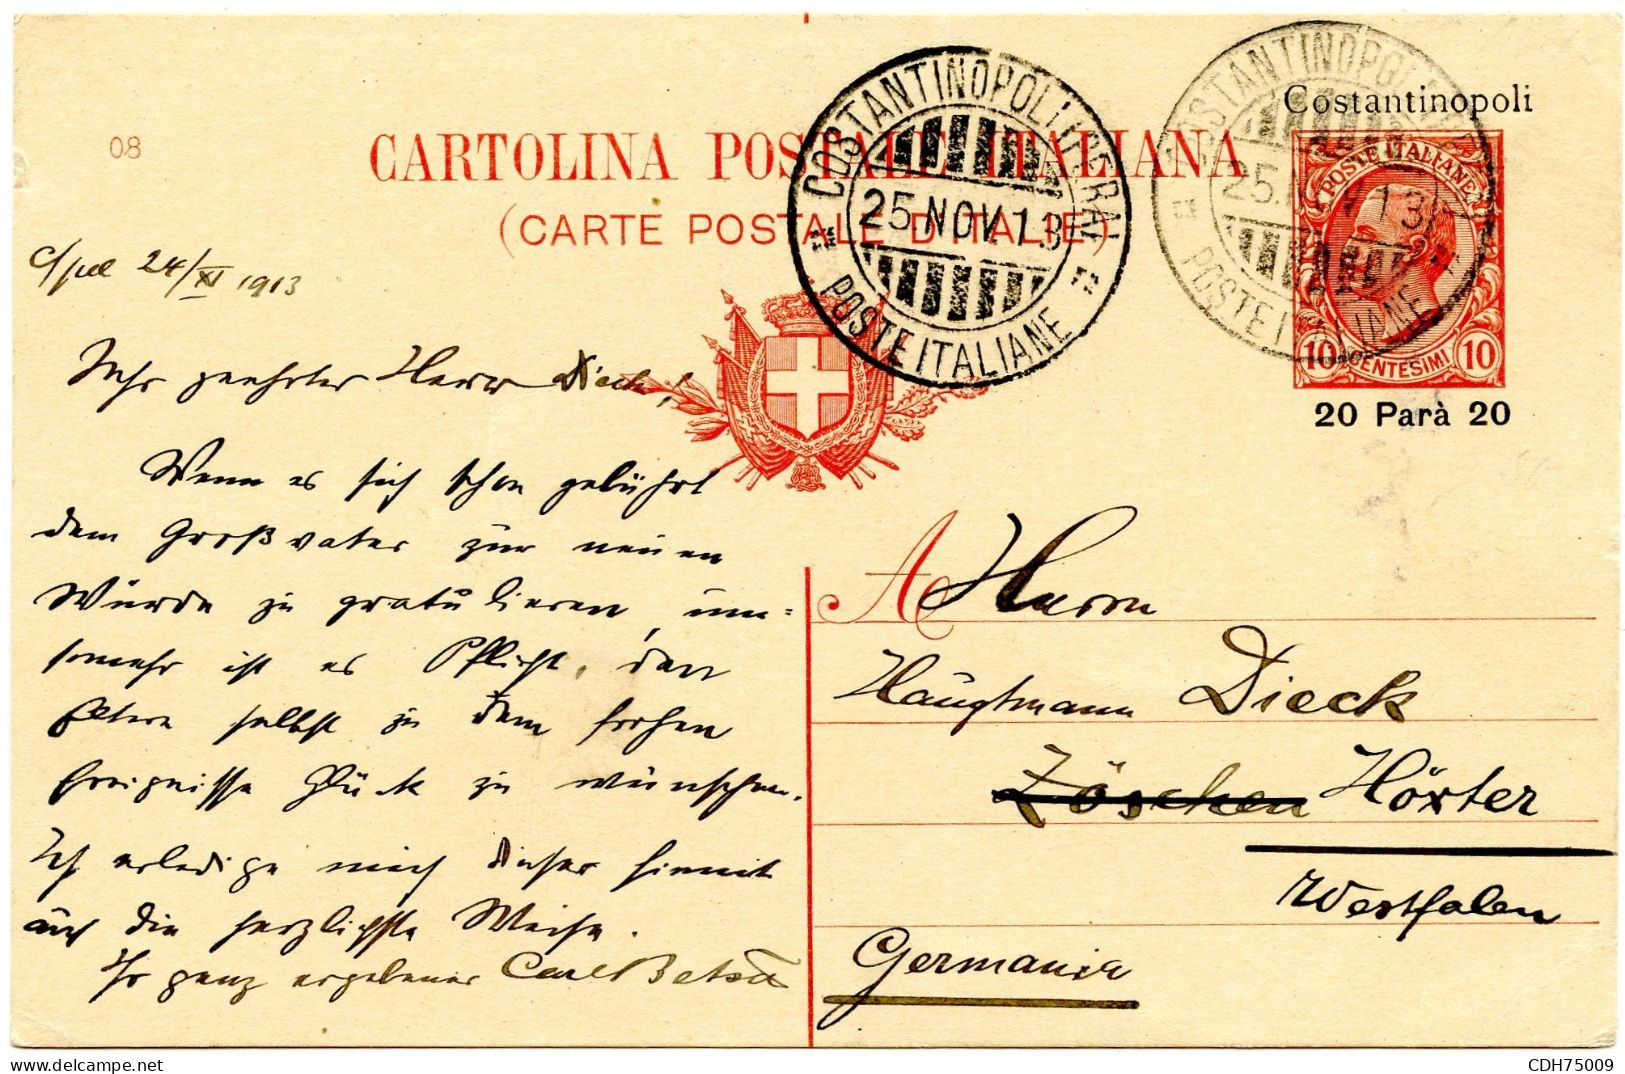 08
CARTOLINA POSTALE ITALIANA
(CARTE POSTALE D'ITALIE)
COSTANTINOPOLI (PERA)
25.NOV.13
POSTE ITALIANE
COSTANTINOPOLI
25. 13
POSTE ITALIANE
Costantinopoli
POSTE ITALIANE
10 CENTESIMI 10
20 Parà 20
C/pel 24/XI 1913
Sehr geehrter Herr Dieck!
Wenn es sich schon gebührt
dem Großvater zur neuen
Würde zu gratulieren, um=
somehr ist es Pflicht, den
Eltern selbst zu dem frohen
Ereignisse Glück zu wünschen.
Ich erledige mich dieser hiemit
auf die herzlichste Weise.
Ihr ganz ergebener Carl
A Herrn
Hauptmann Dieck
Zöschen Höxter
Westfalen
Germania
CDH75009